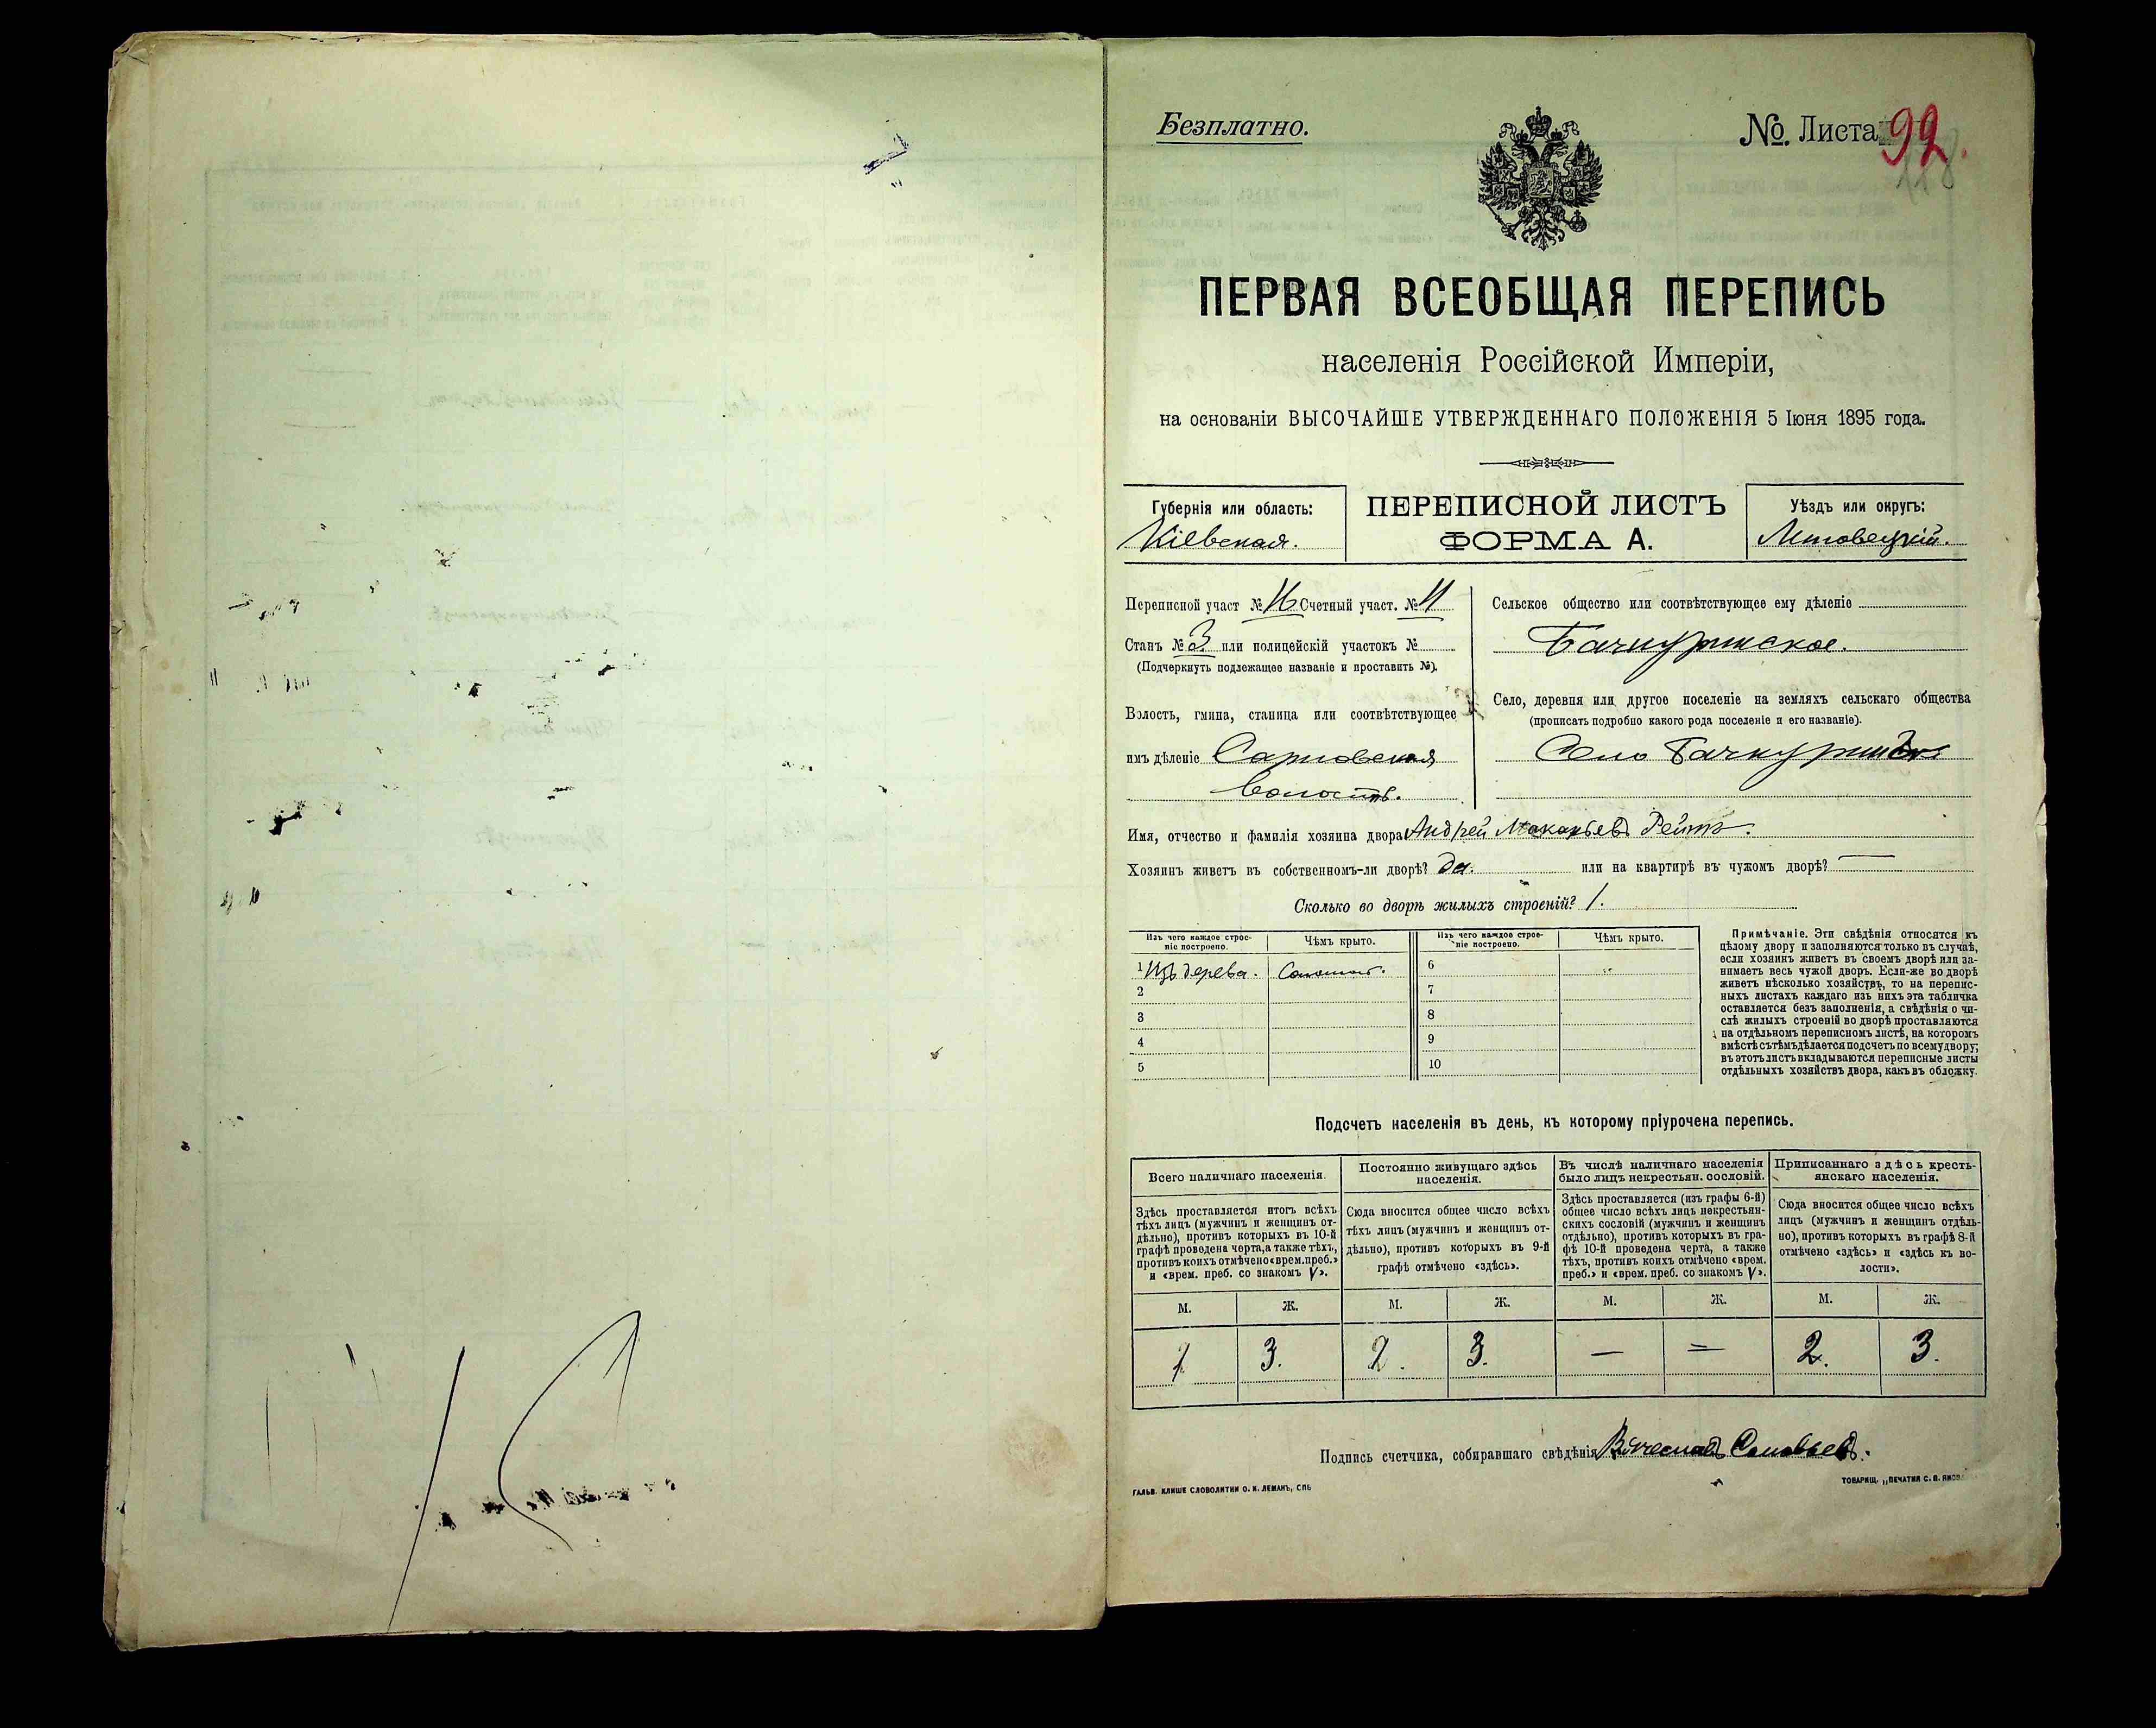 Безплатно.
№ Листа 92.
118
ПЕРВАЯ ВСЕОБЩАЯ ПЕРЕПИСЬ
населенія Россійской Имперіи,
на основаніи ВЫСОЧАЙШЕ УТВЕРЖДЕННАГО ПОЛОЖЕНІЯ 5 Іюня 1895 года.
Губернія или область:
Кіевская.
ПЕРЕПИСНОЙ ЛИСТЪ
ФОРМА А.
Уѣздъ или округъ:
Липовецкій.
Переписной участ № 16 Счетный участ. № 11
Станъ № 3. или полицейскій участокъ №
(Подчеркнуть подлежащее названіе и проставить №).
Волость, гмина, станица или соотвѣтствующее
имъ дѣленіе
волость.
Сельское общество или соотвѣтствующее ему дѣленіе
Бачкуринское.
Село, деревня или другое поселеніе на земляхъ сельскаго общества
(прописать подробно какого рода поселеніе и его названіе).
Село
Имя, отчество и фамилія хозяина двора Андрей Макарьевъ
Хозяинъ живетъ въ собственномъ-ли дворѣ? да. или на квартирѣ въ чужомъ дворѣ? —
Сколько во дворѣ жилыхъ строеній? 1.
Изъ чего каждое строе-
ніе построено.
Чѣмъ крыто.
Изъ чего каждое строе-
ніе построено.
Чѣмъ крыто.
1 Изъ дерева. 6
2 7
3 8
4 9
5 10
Примѣчаніе. Эти свѣдѣнія относятся къ
цѣлому двору и заполняются только въ случаѣ,
если хозяинъ живетъ въ своемъ дворѣ или за-
нимаетъ весь чужой дворъ. Если-же во дворѣ
живетъ нѣсколько хозяйствъ, то на перепис-
ныхъ листахъ каждаго изъ нихъ эта табличка
оставляется безъ заполненія, а свѣдѣнія о чи-
слѣ жилыхъ строеній во дворѣ проставляются
на отдѣльномъ переписномъ листѣ, на которомъ
вмѣстѣ съ тѣмъ дѣлается подсчетъ по всему двору;
въ этотъ листъ вкладываются переписные листы
отдѣльныхъ хозяйствъ двора, какъ въ обложку.
Подсчетъ населенія въ день, къ которому пріурочена перепись.
Всего наличнаго населенія.
Здѣсь проставляется итогъ всѣхъ
тѣхъ лицъ (мужчинъ и женщинъ от-
дѣльно), противъ которыхъ въ 10-й
графѣ проведена черта, а также тѣхъ,
противъ коихъ отмѣчено «врем. преб.»
и «врем. преб. со знакомъ V».
Постоянно живущаго здѣсь
населенія.
Сюда вносится общее число всѣхъ
тѣхъ лицъ (мужчинъ и женщинъ от-
дѣльно), противъ которыхъ въ 9-й
графѣ отмѣчено «здѣсь».
Въ числѣ наличнаго населенія
было лицъ некрестьян. сословій.
Здѣсь проставляется (изъ графы 6-й)
общее число всѣхъ лицъ некрестьян-
скихъ сословій (мужчинъ и женщинъ
отдѣльно), противъ которыхъ въ гра-
фѣ 10-й проведена черта, а также
тѣхъ, противъ коихъ отмѣчено «врем.
преб.» и «врем. преб. со знакомъ V».
Приписаннаго здѣсь кресть-
янскаго населенія.
Сюда вносится общее число всѣхъ
лицъ (мужчинъ и женщинъ отдѣль-
но), противъ которыхъ въ графѣ 8-й
отмѣчено «здѣсь» и «здѣсь къ во-
лости».
М. Ж. М. Ж. М. Ж. М. Ж.
2 3. 2. 3. — = 2. 3.
Подпись счетчика, собиравшаго свѣдѣнія Вячеславъ Соловьевъ.
ГАЛЬВ. КЛИШЕ СЛОВОЛИТНИ О. И. ЛЕМАНЪ, СПБ
ТОВАРИЩ. „ПЕЧАТНЯ С. П.